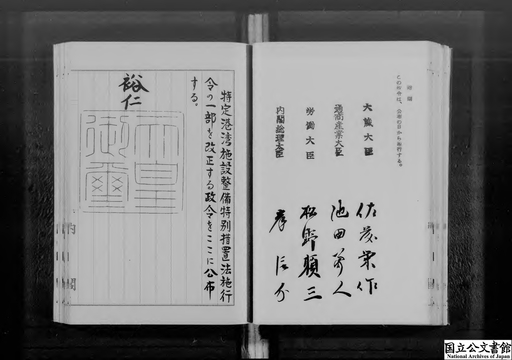 附則
この政令は、公布の日から施行する。
大蔵大臣 佐藤栄作
通商産業大臣 池田勇人
労働大臣 松野頼三
内閣総理大臣 岸信介
特定港湾施設整備特別措置法施行
令の一部を改正する政令をここに公布
する。
裕仁
天皇
御璽
内閣
国立公文書館
National Archives of Japan